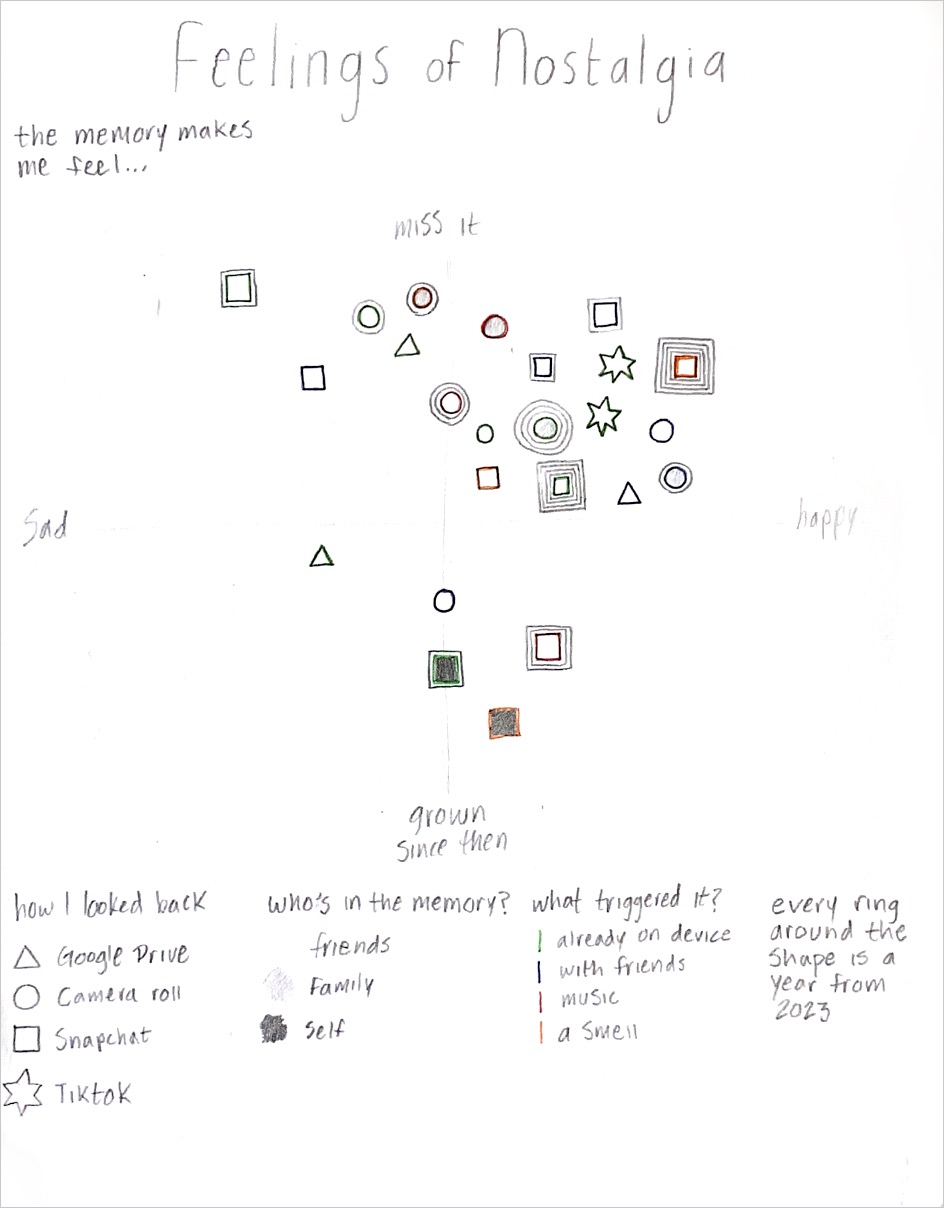 Feelings of Nostalgia
the memory makes
me feel...
miss it
Sad
happy
grown
since then
how I looked back
Google Drive
Camera roll
Snapchat
Tiktok
who's in the memory?
friends
Family
Self
what triggered it?
already on device
with friends
music
a smell
every ring
around the
shape is a
year from
2023